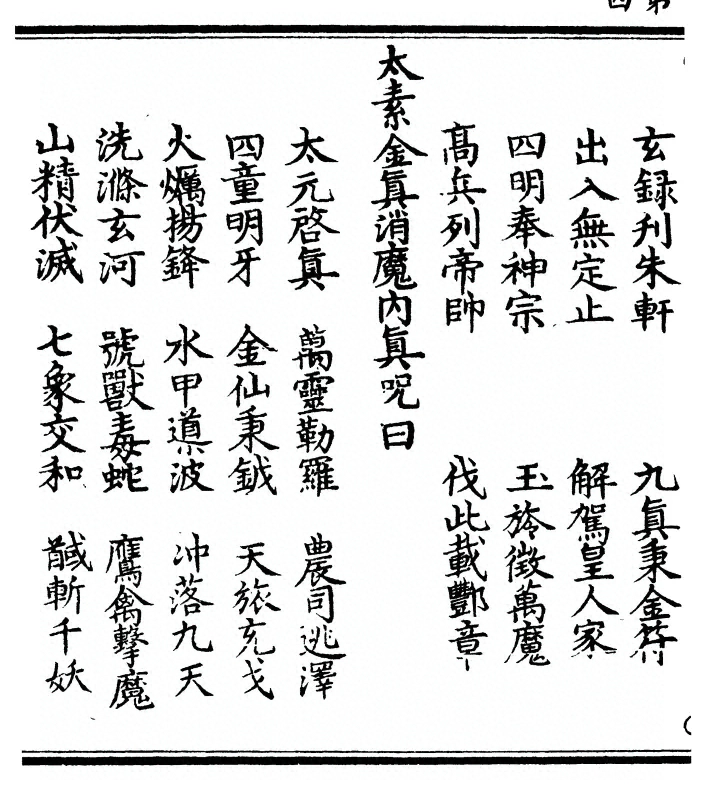 玄録刋朱軒　九眞秉金符
出入無定止　解駕皇人家
四明奉神宗　玉旍徵萬魔
髙兵列帝帥　伐此載酆章
太素金眞消魔内眞呪曰
太元啓眞　萬靈勒羅　農司逃澤
四童明牙　金仙秉鉞　天旅充戈
火爥揚鋒　水甲導波　冲落九天
洗滌玄河　號獸毒蛇　鷹禽擊魔
山精伏滅　七象交和　馘斬千妖